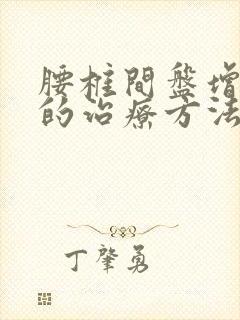 腰柱間盤增
的治療方法
丁肇勇